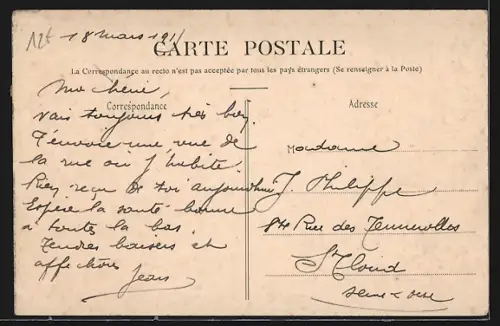 12f
18 mars 191
CARTE POSTALE
La Correspondance au recto n'est pas acceptée par tous les pays étrangers (Se renseigner à la Poste)
Correspondance
Adresse
Ma chérie,
Vais toujours très bien
T'envoie une vue de
la rue où j'habite.
Rien reçu de toi aujourd'hui
Espère la santé bonne
à toutes là bas.
Tendres baisers et
affections
Jean
Madame
J. Philippe
84 Rue des Tennerolles
St Cloud
Seine & Oise